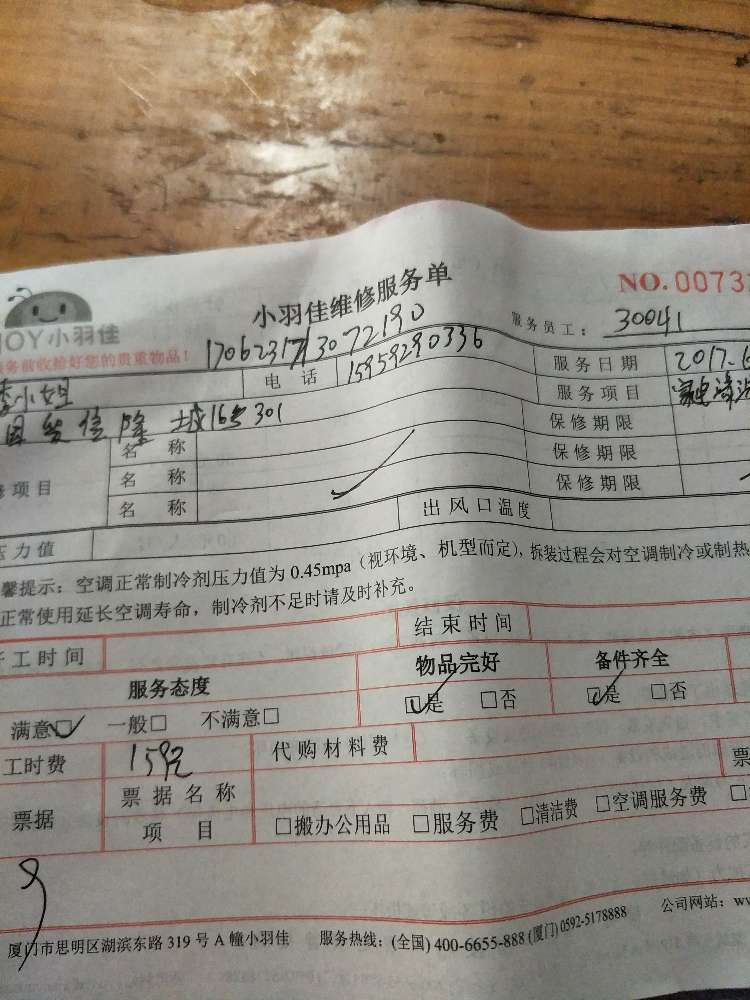 小羽佳维修服务单
NO.0073
JOY小羽佳
服务前收拾好您的贵重物品！
1706231713072190
服务员工： 30041
李小姐 电话 15959290336 服务日期 2017.6
信隆城16 301 服务项目
名称 保修期限
项目 名称 保修期限
名称 保修期限
压力值 出风口温度
馨提示：空调正常制冷剂压力值为 0.45mpa（视环境、机型而定），拆装过程会对空调制冷或制热
正常使用延长空调寿命，制冷剂不足时请及时补充。
开工时间 结束时间
服务态度 物品完好 备件齐全
满意□ 一般□ 不满意□ □是 □否 □是 □否
工时费 159元 代购材料费
票据 票据名称 票
项目 □搬办公用品 □服务费 □清洁费 □空调服务费 □
厦门市思明区湖滨东路 319 号 A 幢小羽佳 服务热线：(全国) 400-6655-888 (厦门) 0592-5178888 公司网站：